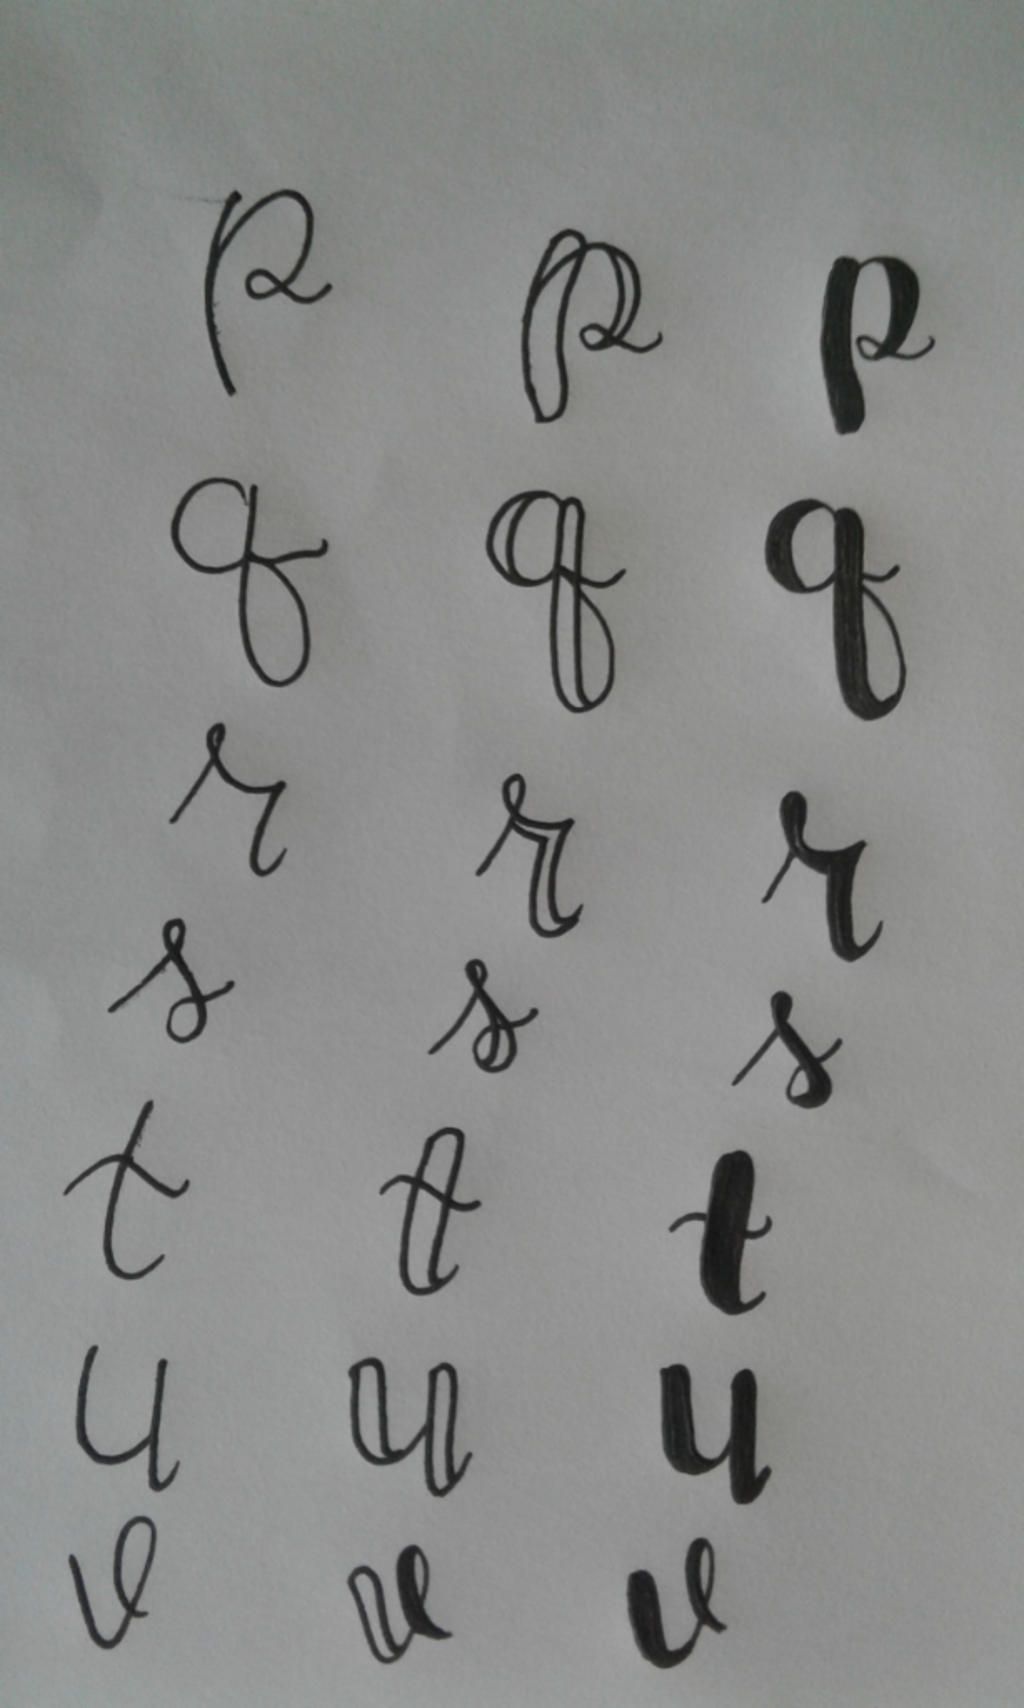 p p p
q q q
r r r
s s s
t t t
u u u
v v v